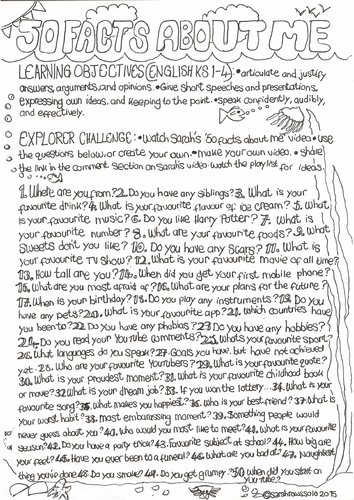 50 FACTS ABOUT ME
LEARNING OBJECTIVES (ENGLISH KS 1-4): • articulate and justify
answers, arguments, and opinions. • Give short speeches and presentations,
expressing own ideas, and keeping to the point. • speak confidently, audibly,
and effectively.
EXPLORER CHALLENGE: • Watch Sarah's '50 facts about me' video • use
the questions below, or create your own. • make your own video. • share
the link in the comment section on Sarah's video. watch the playlist
for ideas.
1. Where are you from? 2. Do you have any siblings? 3. What is your
favourite drink? 4. What is your favourite flavour of ice cream? 5. What
is your favourite music? 6. Do you like Harry Potter? 7. What is
your favourite number? 8. What are your favourite foods? 9. What
sweets don't you like? 10. Do you have any scars? 11. What is your
favourite TV show? 12. What is your favourite movie of all time?
13. How tall are you? 14. When did you get your first mobile phone?
15. What are you most afraid of? 16. What are your plans for the future?
17. When is your birthday? 18. Do you play any instruments? 19. Do you
have any pets? 20. What is your favourite app? 21. Which countries have
you been to? 22. Do you have any phobias? 23 Do you have any hobbies?
24. Do you read your YouTube comments? 25. What's your favourite sport?
26. What languages do you speak? 27. Goals you have, but have not achieved
yet. 28. Who are your favourite YouTubers? 29. What is your favourite quote?
30. What is your proudest moment? 31. What is your favourite childhood book
or movie? 32 What is your dream job? 33. If you won the lottery... 34. What is your
favourite song? 35. What makes you happiest? 36. Who is your best friend? 37 What is
your worst habit? 38. Most embarrassing moment? 39. Something people would
never guess about you? 40. Who would you most like to meet? 41. What is your favourite
season? 42. Do you have a party trick? 43. Favourite subject at school? 44. How big are
your feet? 45. Have you ever been to a funeral? 46. What are you bad at? 47. Naughtiest
thing you've done. 48. Do you smoke? 49. Do you get grumpy? 50 When did you start on
YouTube?
@sarahrowssolo 2015